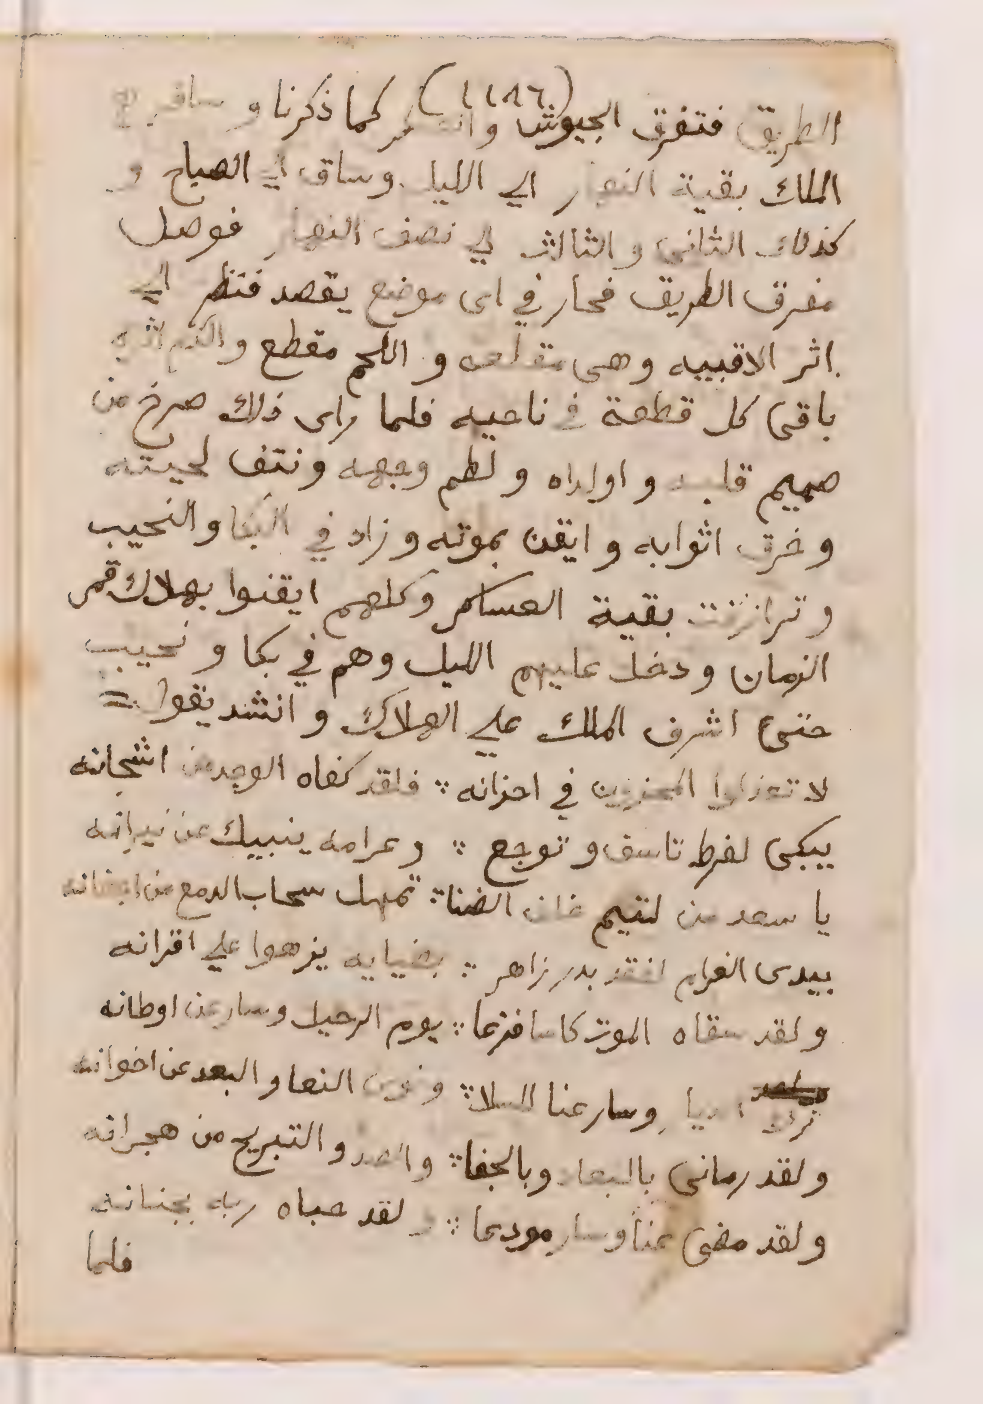 (١١٨٦)
الطريق فتفرق الجيوش والعسكر كما ذكرنا و سافر
الملك بقية النهار الي الليل وساق الي الصباح و
كذلك الثاني و الثالث الي نصف النهار فوصل
مفرق الطريق فحار في اى موضع يقصد فنظر الي
اثر الاقبيه وهى مقطعه و اللحم مقطع والدم اثره
باقى كل قطعة في ناحيه فلما راى ذلك صرخ من
صميم قلبه و اولداه و لطم وجهه ونتف لحيته
و خرق اثوابه و ايقن بموته و زاد في البكا و النحيب
و ترادفت بقية العساكر وكلهم ايقنوا بهلاك قمر
الزمان و دخل عليهم الليل وهم في بكا و نحيب
حتى اشرف الملك علي الهلاك و انشد يقول
لا تعذلوا المحزون في احزانه ؞ فلقد كفاه الوجد من اشجانه
يبكى لفرط تاسف و توجع ؞ وغرامه ينبيك عن نيرانه
يا سعد من لمتيم حلف الضنا ؞ تمهل سحاب الدمع من اجفانه
يبدى الغرام لفقد بدر زاهر ؞ بضيايه يزهوا علي اقرانه
و لقد سقاه الموت كاسا مترعا ؞ يوم الرحيل وسار عن اوطانه
ترك الديار وسار عنا للبلا ؞ و البعد عن اخوانه
و لقد رمانى بالبعاد وبالجفا ؞ والصد و التبريح من هجرانه
و لقد مضى عنا وسار مودعا ؞ و لقد حباه ربه بجنانه
فلما